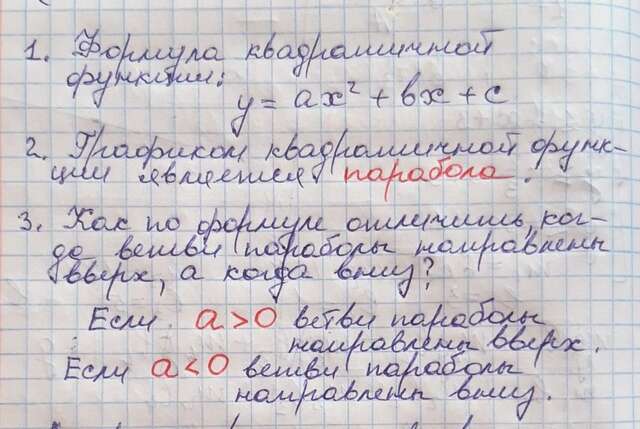 1. Формула квадратичной
функции:
y = ax² + bx + c
2. Графиком квадратичной функ-
ции является парабола.
3. Как по формуле отличить, ког-
да ветви параболы направлены
вверх, а когда вниз?
Если a > 0 ветви параболы
направлены вверх.
Если a < 0 ветви параболы
направлены вниз.